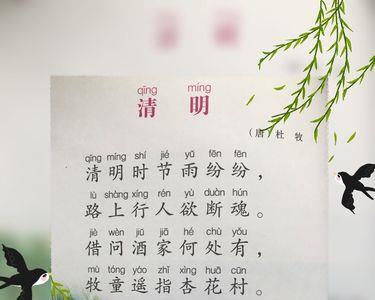 qīng míng
清 明
（唐）杜 牧
qīng míng shí jié yǔ fēn fēn
清明时节雨纷纷，
lù shàng xíng rén yù duàn hún
路上行人欲断魂。
jiè wèn jiǔ jiā hé chù yǒu
借问酒家何处有，
mù tóng yáo zhǐ xìng huā cūn
牧童遥指杏花村。